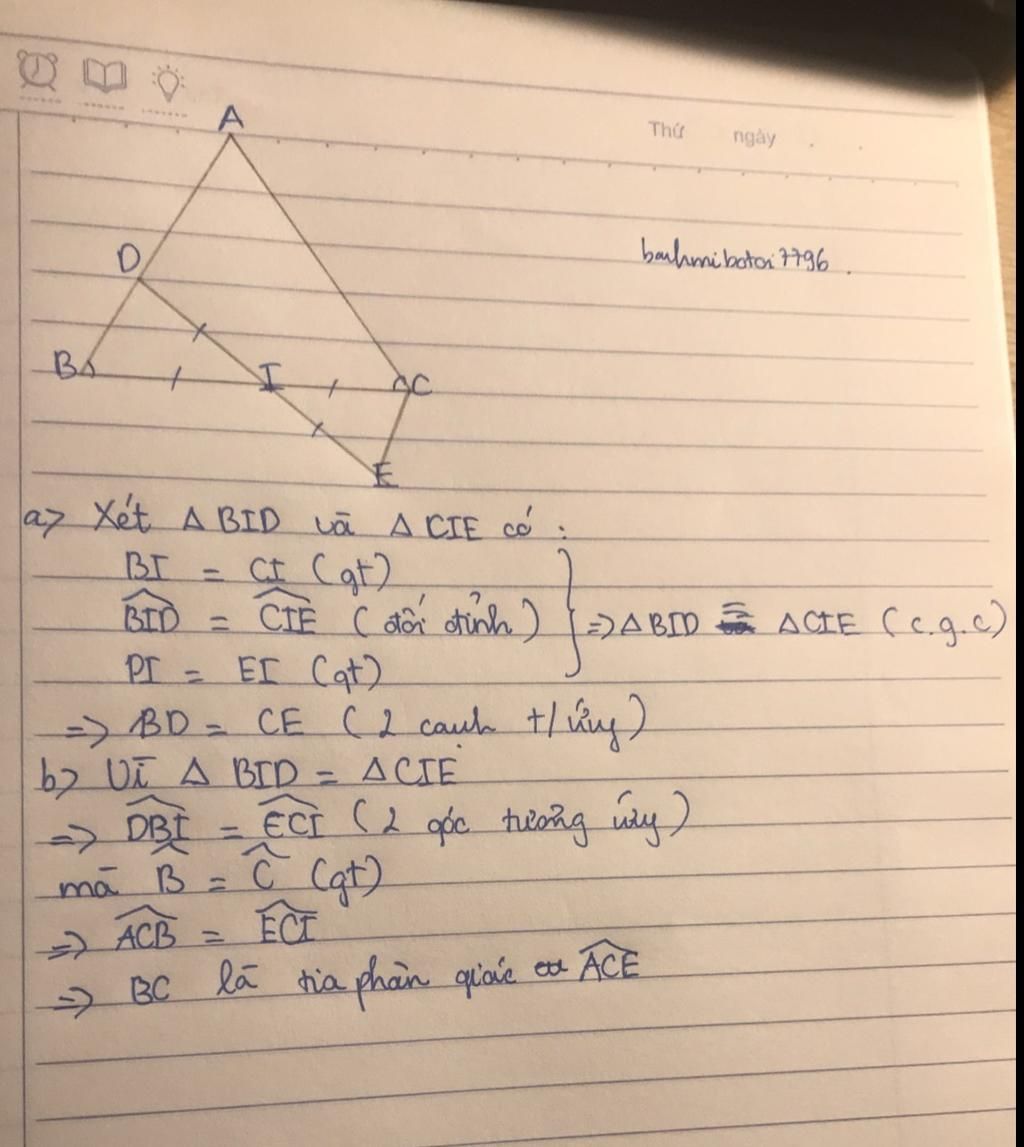 A
Thứ ngày
D
banhmibotoi7796.
B I C
E
a> Xét Δ BID và Δ CIE có :
BI = CI (gt)
BID = CIE (đối đỉnh) => Δ BID = Δ CIE (c.g.c)
PI = EI (gt)
=> BD = CE (2 cạnh t/ứng)
b> Vì Δ BID = Δ CIE
=> DBI = ECI (2 góc tương ứng)
mà B = C (gt)
=> ACB = ECI
=> BC là tia phân giác ACE